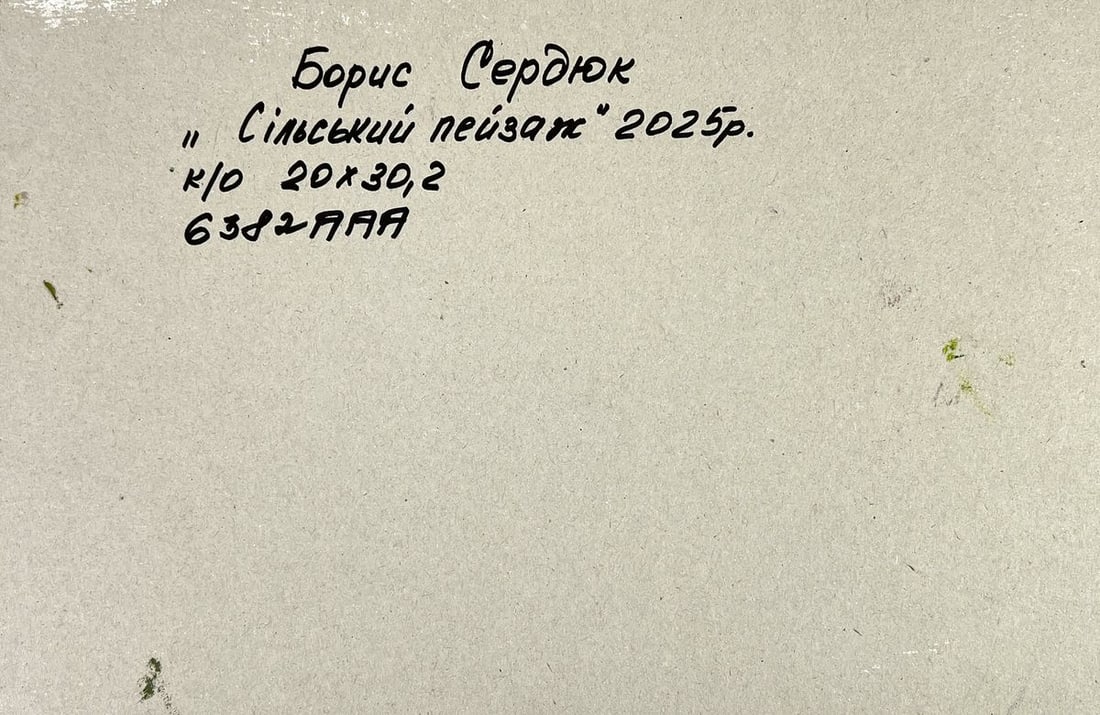 Борис Сердюк
„ Сільський пейзаж" 2025р.
к/о 20х30,2
6382ААА